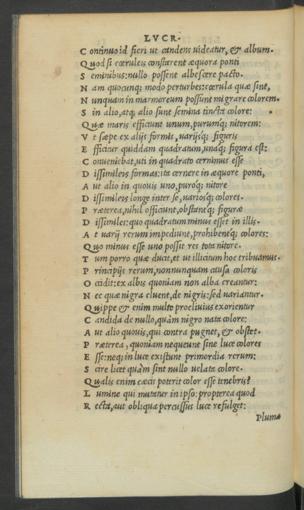 LVCR.
C ontinuo id fieri ut candens uideatur, & album.
Q uod si cœruleis constarent æquora ponti
S eminibus: nullo possent albescere pacto.
N am quocunq; modo perturbes: cœrula quæ sint,
N unquam in marmoreum possunt migrare colorem.
S in alio, atq; alio sunt semina tincta colore:
Q uæ maris efficiunt unum, purumq; nitorem:
V t sæpe ex alijs formis, uarijsq; figuris
E fficitur quiddam quadratum, unaq; figura est:
C onueniebat, uti in quadrato cernimus esse
D issimileis formas: ita cernere in æquore ponti,
A ut alio in quouis uno, puroq; nitore
D issimileis longe inter se, uariosq; colores.
P ræterea, nihil officiunt, obstantq; figuræ
D issimiles: quo quadratum minus esset in illis.
A t uarij rerum impediunt, prohibentq; colores:
Q uo minus esse uno possit res tota nitore.
T um porro quæ ducit, et ut illicitum hoc tribuamus
P rincipijs rerum, nonnunquam causa coloris
O cidit: ex albis quoniam non alba creantur:
N ec quæ nigra cluent, de nigris: sed uariantur.
Q uippe & enim multo procliuius exorientur
C andida de nullo, quàm nigro nata colore:
A ut alio quouis, qui contra pugnet, & obstet.
P ræterea, quoniam nequeunt sine luce colores
E sse: neq; in luce existunt primordia rerum:
S cire licet quàm sint nullo uelata colore.
Q ualis enim cæcis poterit color esse tenebris?
L umine qui mutatur in ipso: propterea quod
R ecta, aut obliqua percussus luce refulget:
Pluma